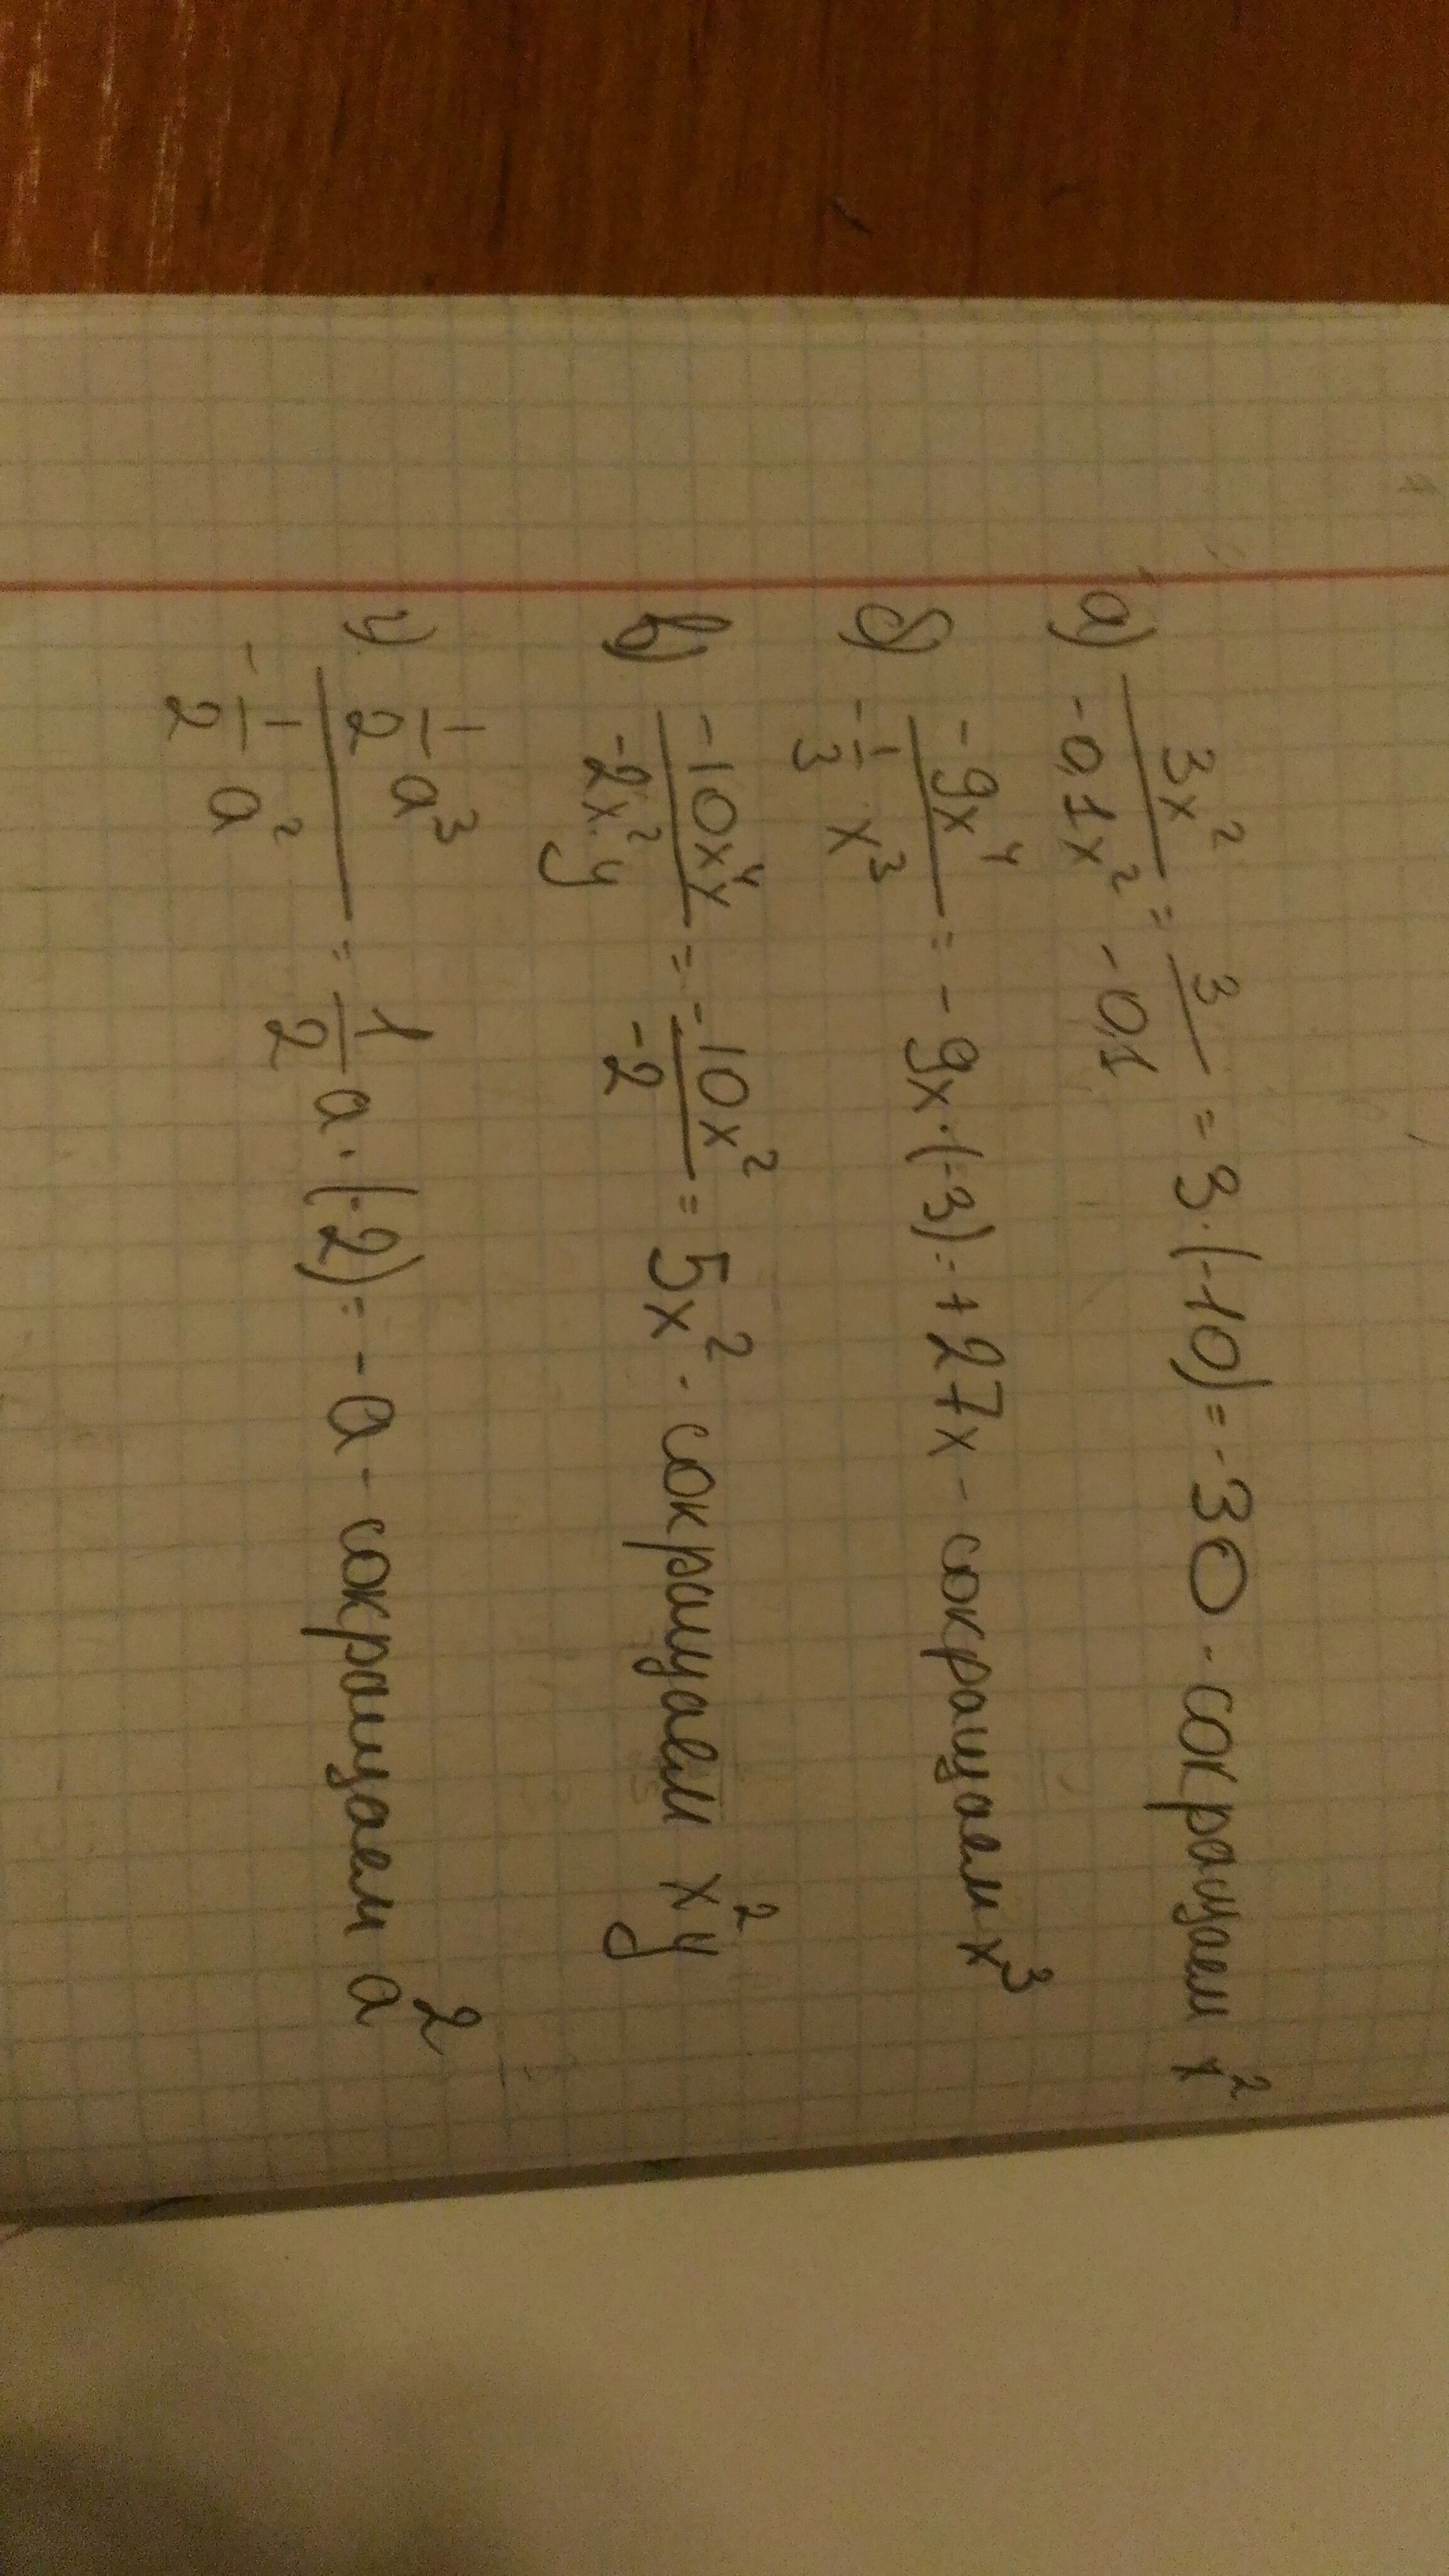 а) 3x² / -0,1x² = 3 / -0,1 = 3·(-10) = -30 - сокращаем x²
б) -9x⁴ / -1/3 x³ = -9x·(-3) = +27x - сокращаем x³
в) -10x⁴y / -2x²y = -10x² / -2 = 5x² - сокращаем x²y
г) 1/2 a³ / -1/2 a² = 1/2 a·(-2) = -a - сокращаем a²